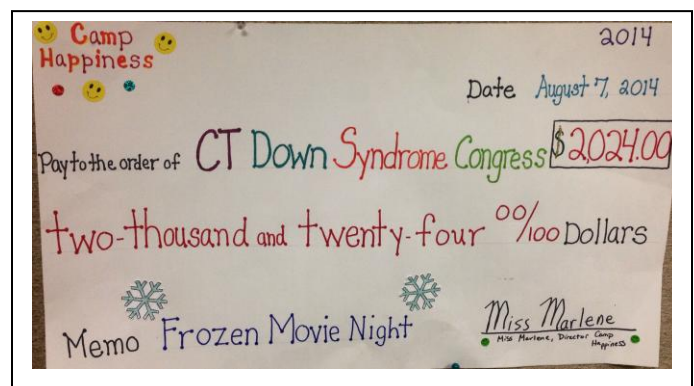 Camp
Happiness
2014
Date August 7, 2014
Pay to the order of CT Down Syndrome Congress $2,024.00
two-thousand and twenty-four 00/100 Dollars
Memo Frozen Movie Night
Miss Marlene
Miss Marlene, Director Camp
Happiness